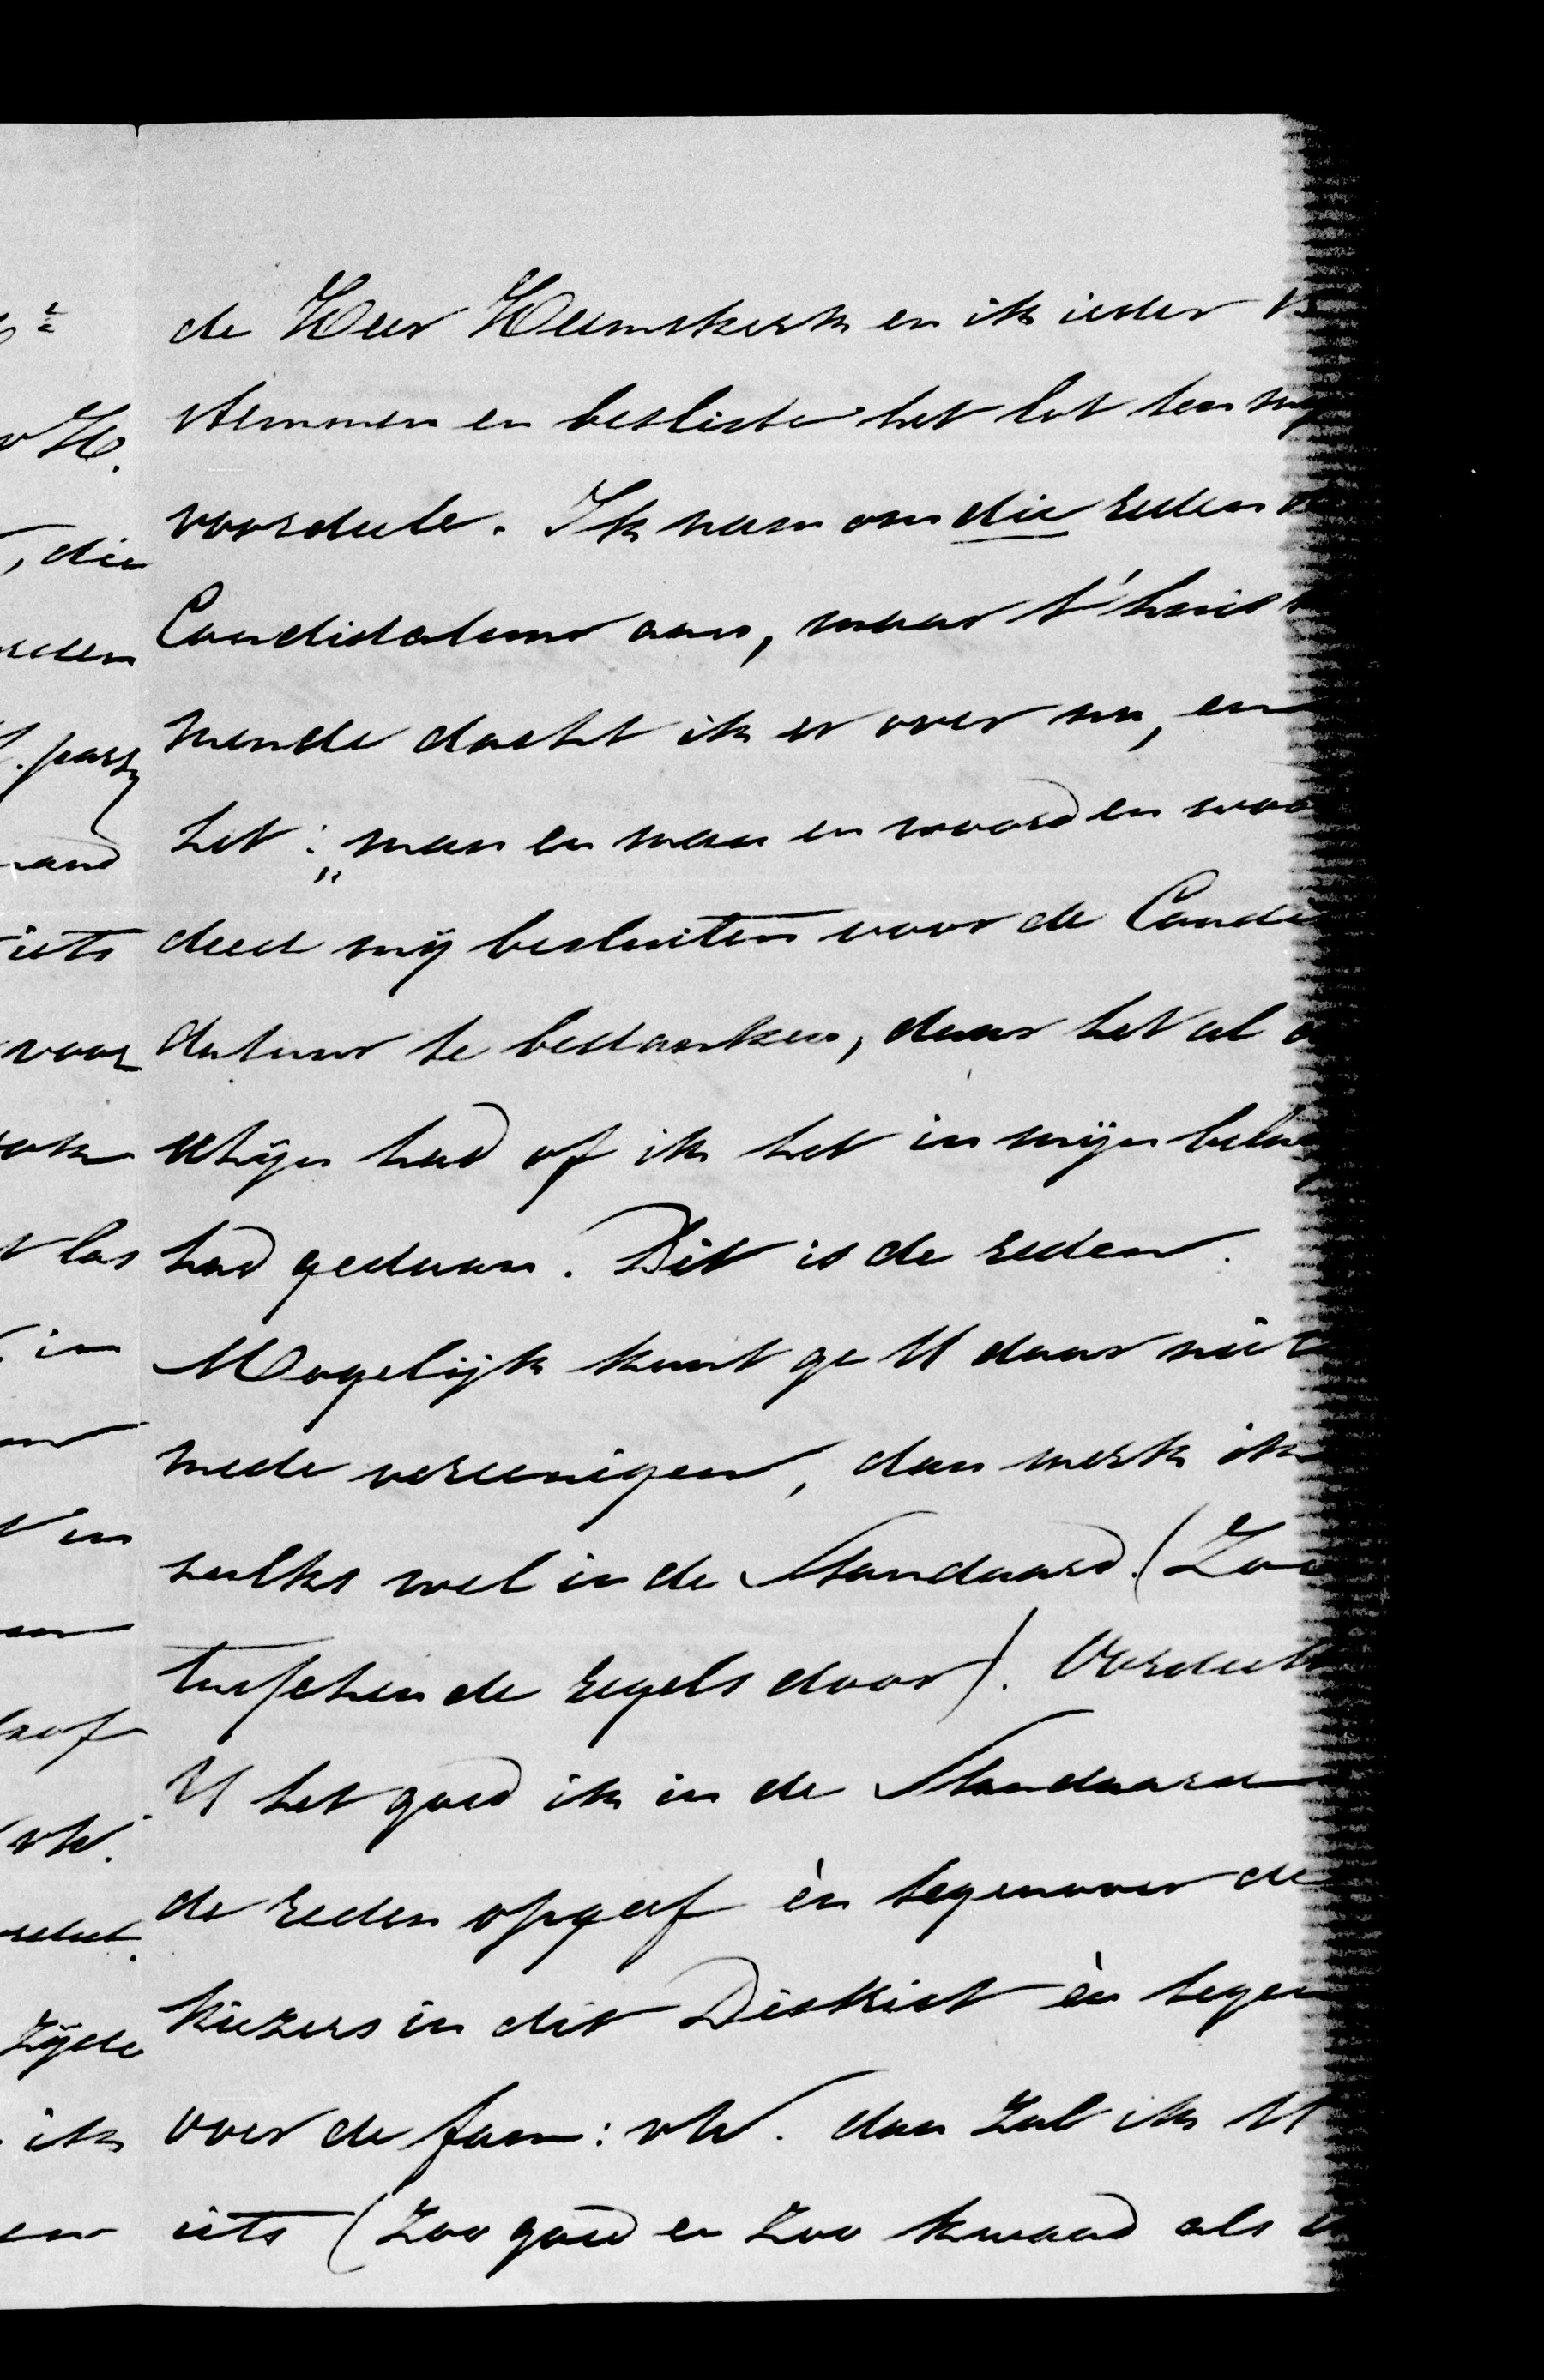 de Heer Heemskerk en ik ieder
stemmen en besliste het lot ten mij
voordeele. Ik nam om die reden
Candidatuur aan, maar t'huis
mende dacht ik er over na, en
het: „man en man en woord en woo
deed mij besluiten voor de Candi
datuur te bedanken, daar het al
schijn had of ik het in mijn belang
had gedaan. Dit is de reden.
Mogelijk kunt ge U daar niet
mede vereenigen, dan merk ik
zulks wel in de Standaard. (Zoo
tusschen de regels door). Oordeelt
U het goed ik in de Standaard
de reden opgeef èn tegenover de
kiezers in dit District èn tegen
over de fam: vW. dan zal ik U
iets (zoo goed en zoo kwaad als
, die
party
iets
voor
las
in
zijde
ik